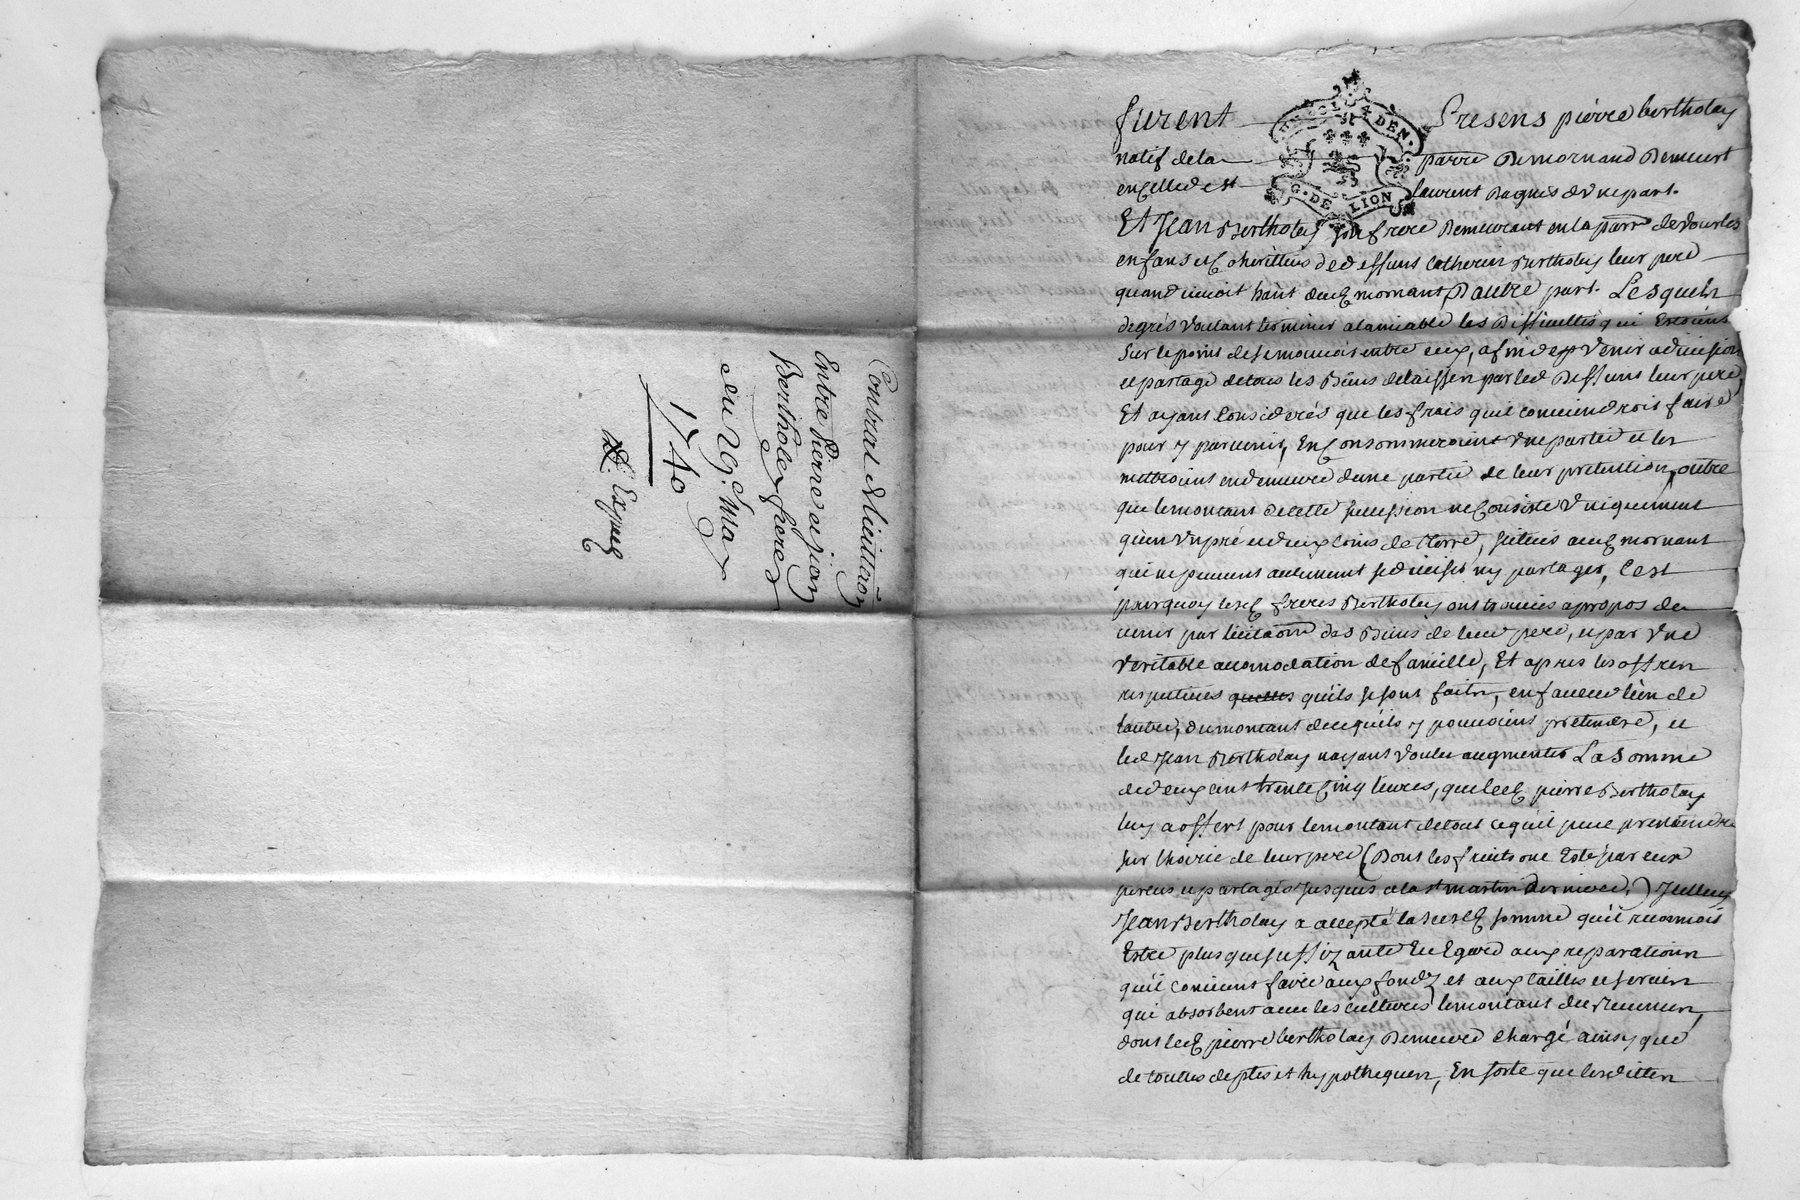 Contrat de licitaôn
Entre Pierre et jean
Bertholey freres
du 29e. Ma
1740
Furent Presens pierre bertholay
natif de la parre De mornand Demeurt
en celle de st laurent Dagnis d'vne part.
Et Jean Bertholay son frere Demeurant en la parr de
enfans et coherittiers de deffunt Bertholay leur pere
quand vivoit habt dud mornant, D'autre part. Lesquels
degrés voulant terminer alamiable les Difficultés qui Estoient
sur le point de se mouvoir entre eux, afin de venir a division
et partage de tous les Biens delaissez par led Deffunt leur pere,
Et ayant Considerés que les frais quil conviendroit faire
pour y parvenir, En Consommeroient vne partie et les
mettroient en demeure dune partie de leur pretention, outre
que le montant de cette succession ne Consiste vniquement
qu'en vn pré et deux coins de terre, scitués aud mornant
qui ne peuvent aucunement se diviser ny partager, C'est
pourquoy lesd freres Bertholay ont trouvés apropos de
venir par licitaôn des Biens de leur pere, et par vne
veritable accomodation de famille, Et apres les offres
respectives quelles qu'ils se sont faites, en faveur l'un de
l'autre, du montant de ce qu'ils y pouvoient pretendre, et
led Jean Bertholay n'ayant voulu augmenter La somme
de deux cent trente Cinq livres, que led pierre Bertholay
luy a offert pour le montant de tout ce qu'il peut pretendre
sur l'hoirie de leur pere (Dont les fruits ont Esté par eux
perçus et partagés jusques a la st martin Derniere,) Icelluy
Jean Bertholay a accepté la susd somme qu'il reconnoit
Estre plus que suffizante Eu Egard aux reparations
qu'il convient faire aux fondz et aux tailles et servis
qui absorbent avec les cultures le montant des Revenus,
dont led pierre bertholay Demeure chargé ainsy que
de toutes deptes et hypotheques, En sorte que lesdittes